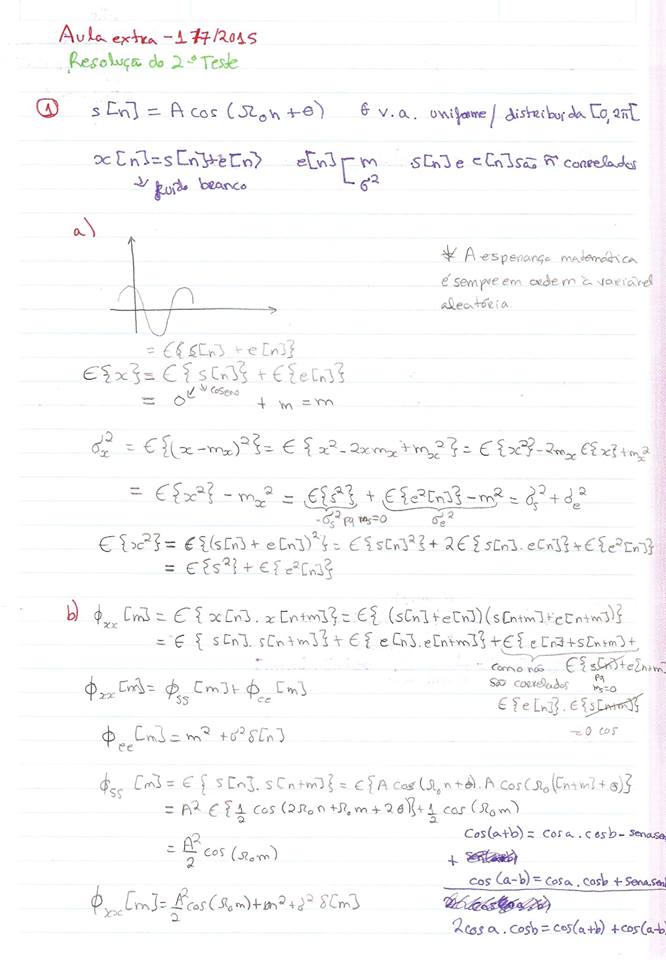 Aula extra - 1/7/2015
Resoluça do 2º Teste
① s[n] = A cos (Ω₀n + θ) θ v.a. uniforme/ distribuida [0, 2π[
x[n] = s[n] + e[n] e[n] [ m σ² s[n] e e[n] são ñ correlados
↳ ruido branco
a)
* A esperança matemática
é sempre em ordem à variável
aleatória
= E{s[n] + e[n]}
E{x} = E{s[n]} + E{e[n]}
= 0 ↙ ↘ coseno + m = m
σₓ² = E{(x - mₓ)²} = E{x² - 2xmₓ + mₓ²} = E{x²} - 2mₓ E{x} + mₓ²
= E{x²} - mₓ² = E{s²} + E{e²[n]} - m² = σₛ² + σₑ²
= σₛ² pq mₛ = 0 σₑ²
E{x²} = E{(s[n] + e[n])²} = E{s[n]²} + 2E{s[n] . e[n]} + E{e²[n]}
= E{s²} + E{e²[n]}
b) ϕₓₓ[m] = E{x[n] . x[n+m]} = E{(s[n] + e[n])(s[n+m] + e[n+m])}
= E{s[n] . s[n+m]} + E{e[n] . e[n+m]} + E{e[n] + s[n+m] +
como não E{s[n] + e[n+m]
são correlados pq mₛ=0
ϕₓₓ[m] = ϕₛₛ[m] + ϕₑₑ[m]
E{e[n]} . E{s[n+m]}
= 0 cos
ϕₑₑ[m] = m² + σ² δ[n]
ϕₛₛ[m] = E{s[n] . s[n+m]} = E{A cos(Ω₀n + θ) . A cos(Ω₀([n+m] + θ)}
= A² E{½ cos(2Ω₀n + Ω₀m + 2θ)} + ½ cos(Ω₀m)
= A²/2 cos(Ω₀m)
cos(a+b) = cosa . cosb - sena sen
+
cos(a-b) = cosa . cosb + sena sen
ϕₓₓ[m] = A²/2 cos(Ω₀m) + m² + σ² δ[m]
2cosa . cosb = cos(a+b) + cos(a-b)